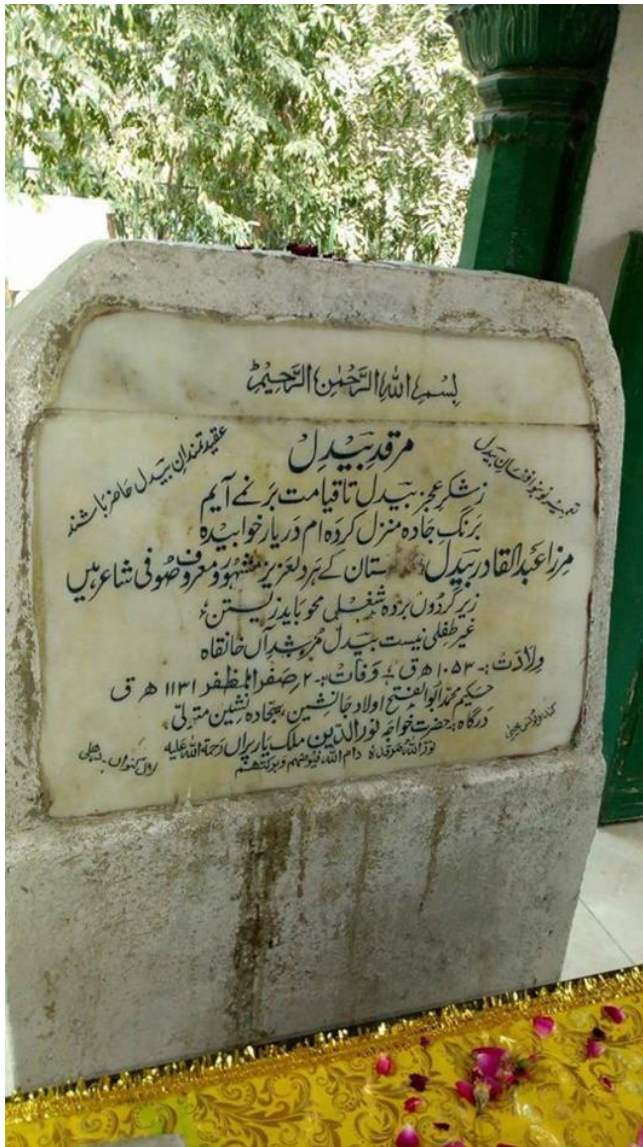 بسم اللہ الرحمٰن الرحیم
مرقدِ بیدل
عقیدتمندانِ بیدل حاضر باشند
بیدل
زشکرِ عجز بیدل تا قیامت بر نمے آیم
برنگِ جادہ منزل کردہ ام در یار خوابیدہ
مرزا عبدالقادر بیدل ستان کے ہر دلعزیز مشہور و معروف صوفی شاعر ہیں
زیرِ گردوں بردہ شغلی محو باید زیستن
غیر طفلی نیست بیدل مرشد آں خانقاہ
ولادت :۔ ۱۰۵۳ ھ ق وفات :۔ ۲ صفر المظفر ۱۱۳۱ ھ ق
حکیم محمد ابوالفتح اولاد جانشین، سجادہ نشین متولی
درگاہ :۔ حضرت خواجہ نورالدین ملک یار پراں رحمۃ اللہ علیہ
نور اللہ مرقدہ دام اللہ فیوضہم وبرکتہم